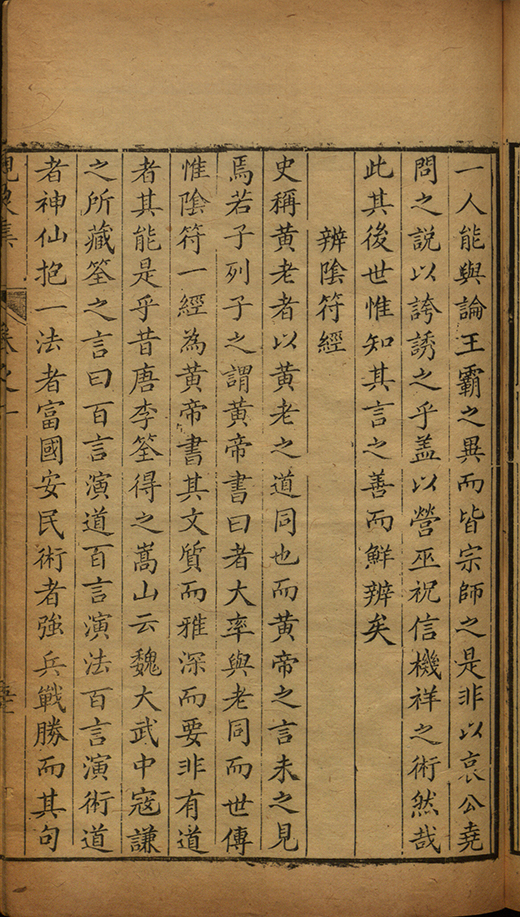 一人能與論王霸之異而皆宗師之是非以哀公堯
問之說以誇誘之乎盖以營巫祝信機祥之術然哉
此其後世惟知其言之善而鮮辨矣
辨陰符經
史稱黄老者以黄老之道同也而黄帝之言未之見
焉若子列子之謂黄帝書曰者大率與老同而世傳
惟陰符一經為黄帝書其文質而雅深而要非有道
者其能是乎昔唐李筌得之嵩山云魏大武中寇謙
之所藏筌之言曰百言演道百言演法百言演術道
者神仙抱一法者富國安民術者強兵戰勝而其句